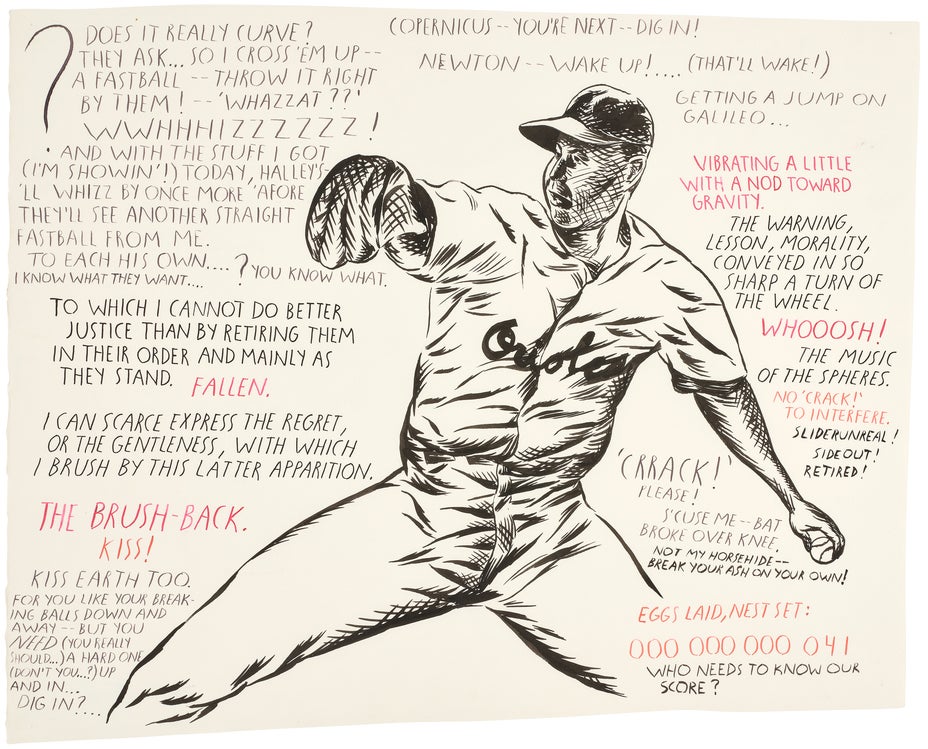 ?
DOES IT REALLY CURVE?
THEY ASK... SO I CROSS 'EM UP --
A FASTBALL -- THROW IT RIGHT
BY THEM! -- 'WHAZZAT ??'
WWHHHIZZZZZZ!
AND WITH THE STUFF I GOT
(I'M SHOWIN'!) TODAY, HALLEY'S
'LL WHIZZ BY ONCE MORE 'AFORE
THEY'LL SEE ANOTHER STRAIGHT
FASTBALL FROM ME.
TO EACH HIS OWN....?
I KNOW WHAT THEY WANT.... YOU KNOW WHAT.
TO WHICH I CANNOT DO BETTER
JUSTICE THAN BY RETIRING THEM
IN THEIR ORDER AND MAINLY AS
THEY STAND. FALLEN.
I CAN SCARCE EXPRESS THE REGRET,
OR THE GENTLENESS, WITH WHICH
I BRUSH BY THIS LATTER APPARITION.
THE BRUSH-BACK.
KISS!
KISS EARTH TOO.
FOR YOU LIKE YOUR BREAK-
ING BALLS DOWN AND
AWAY -- BUT YOU
NEED (YOU REALLY
SHOULD...) A HARD ONE
(DON'T YOU...?) UP
AND IN...
DIG IN?....
COPERNICUS -- YOU'RE NEXT -- DIG IN!
NEWTON -- WAKE UP!.... (THAT'LL WAKE!)
GETTING A JUMP ON
GALILEO...
VIBRATING A LITTLE
WITH A NOD TOWARD
GRAVITY.
THE WARNING,
LESSON, MORALITY,
CONVEYED IN SO
SHARP A TURN OF
THE WHEEL.
WHOOOSH!
THE MUSIC
OF THE SPHERES.
NO 'CRACK!'
TO INTERFERE.
SLIDERUNREAL!
SIDE OUT!
RETIRED!
Orioles
'CRRACK!'
PLEASE!
S'CUSE ME -- BAT
BROKE OVER KNEE.
NOT MY HORSEHIDE --
BREAK YOUR ASH ON YOUR OWN!
EGGS LAID, NEST SET:
000 000 000 041
WHO NEEDS TO KNOW OUR
SCORE?